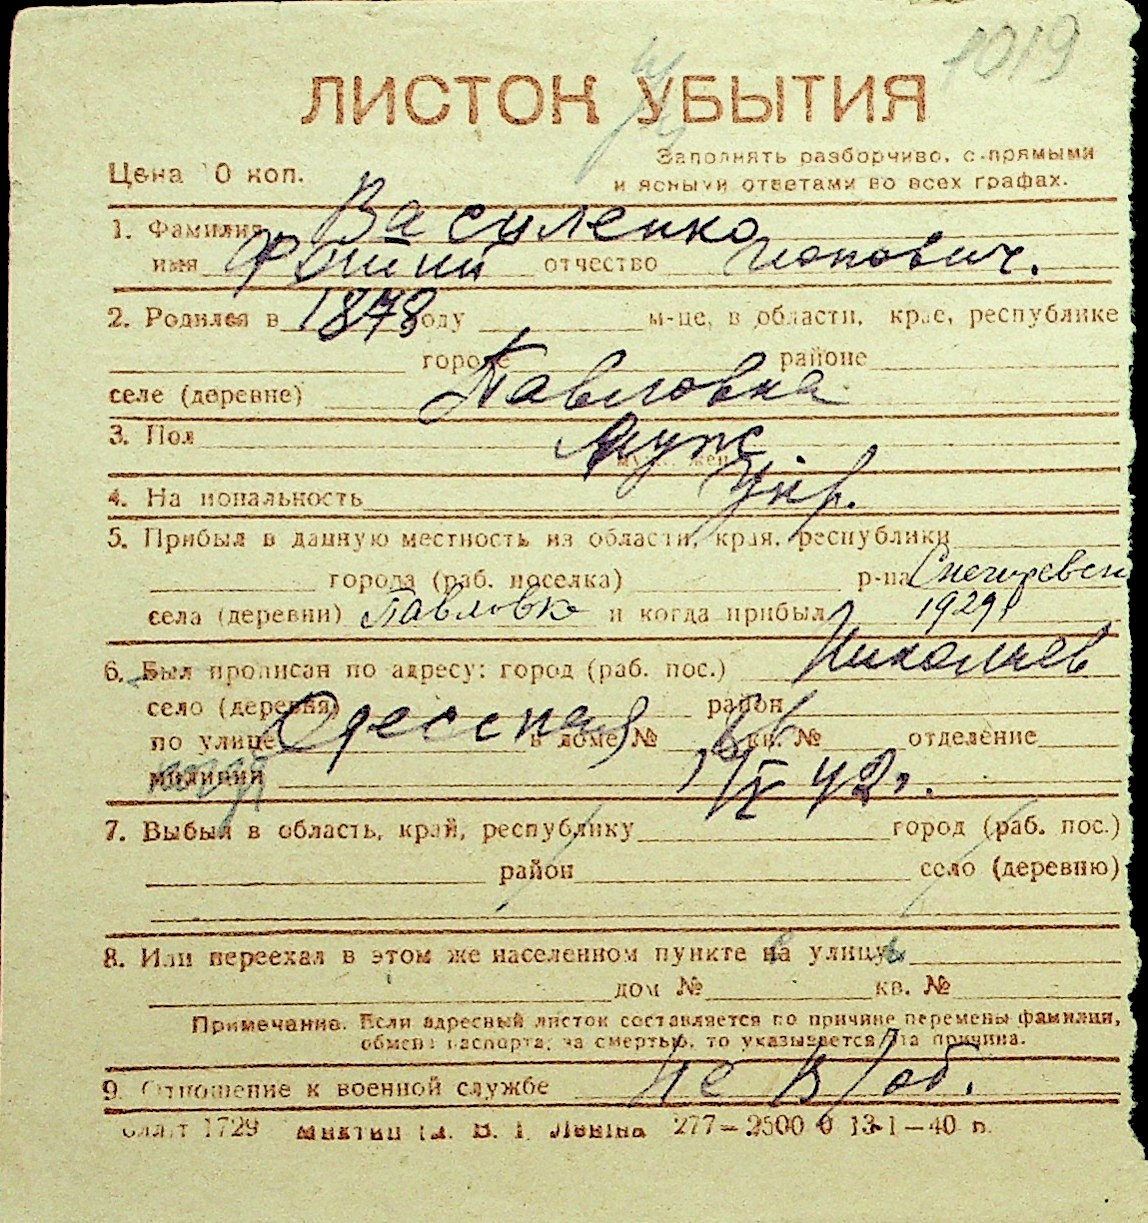 1019
ЛИСТОК УБЫТИЯ
Цена 10 коп.
Заполнять разборчиво, с прямыми
и ясными ответами во всех графах.
1. Фамилия Василенко
имя Фотий отчество
2. Родился в 1878 году м-це, в области, крае, республике
городе районе
селе (деревне) Павловка
3. Пол муж
муж. жен.
4. Национальность укр.
5. Прибыл в данную местность из области, края, республики
города (раб. поселка) р-на Снегиревск
села (деревни) Павловка и когда прибыл 1929
6. Был прописан по адресу: город (раб. пос.) Николаев
село (деревня) район
по улице Одесская в доме № 66 кв. № отделение
милиции когда 42 г.
7. Выбыл в область, край, республику город (раб. пос.)
район село (деревню)
8. Или переехал в этом же населенном пункте на улицу
дом № кв. №
Примечание. Если адресный листок составляется по причине перемены фамилии,
обмена паспорта, за смертью, то указывается эта причина.
9. Отношение к военной службе не в/об.
1729 В. І. Леніна 277—2500 0 13-I—40 п.